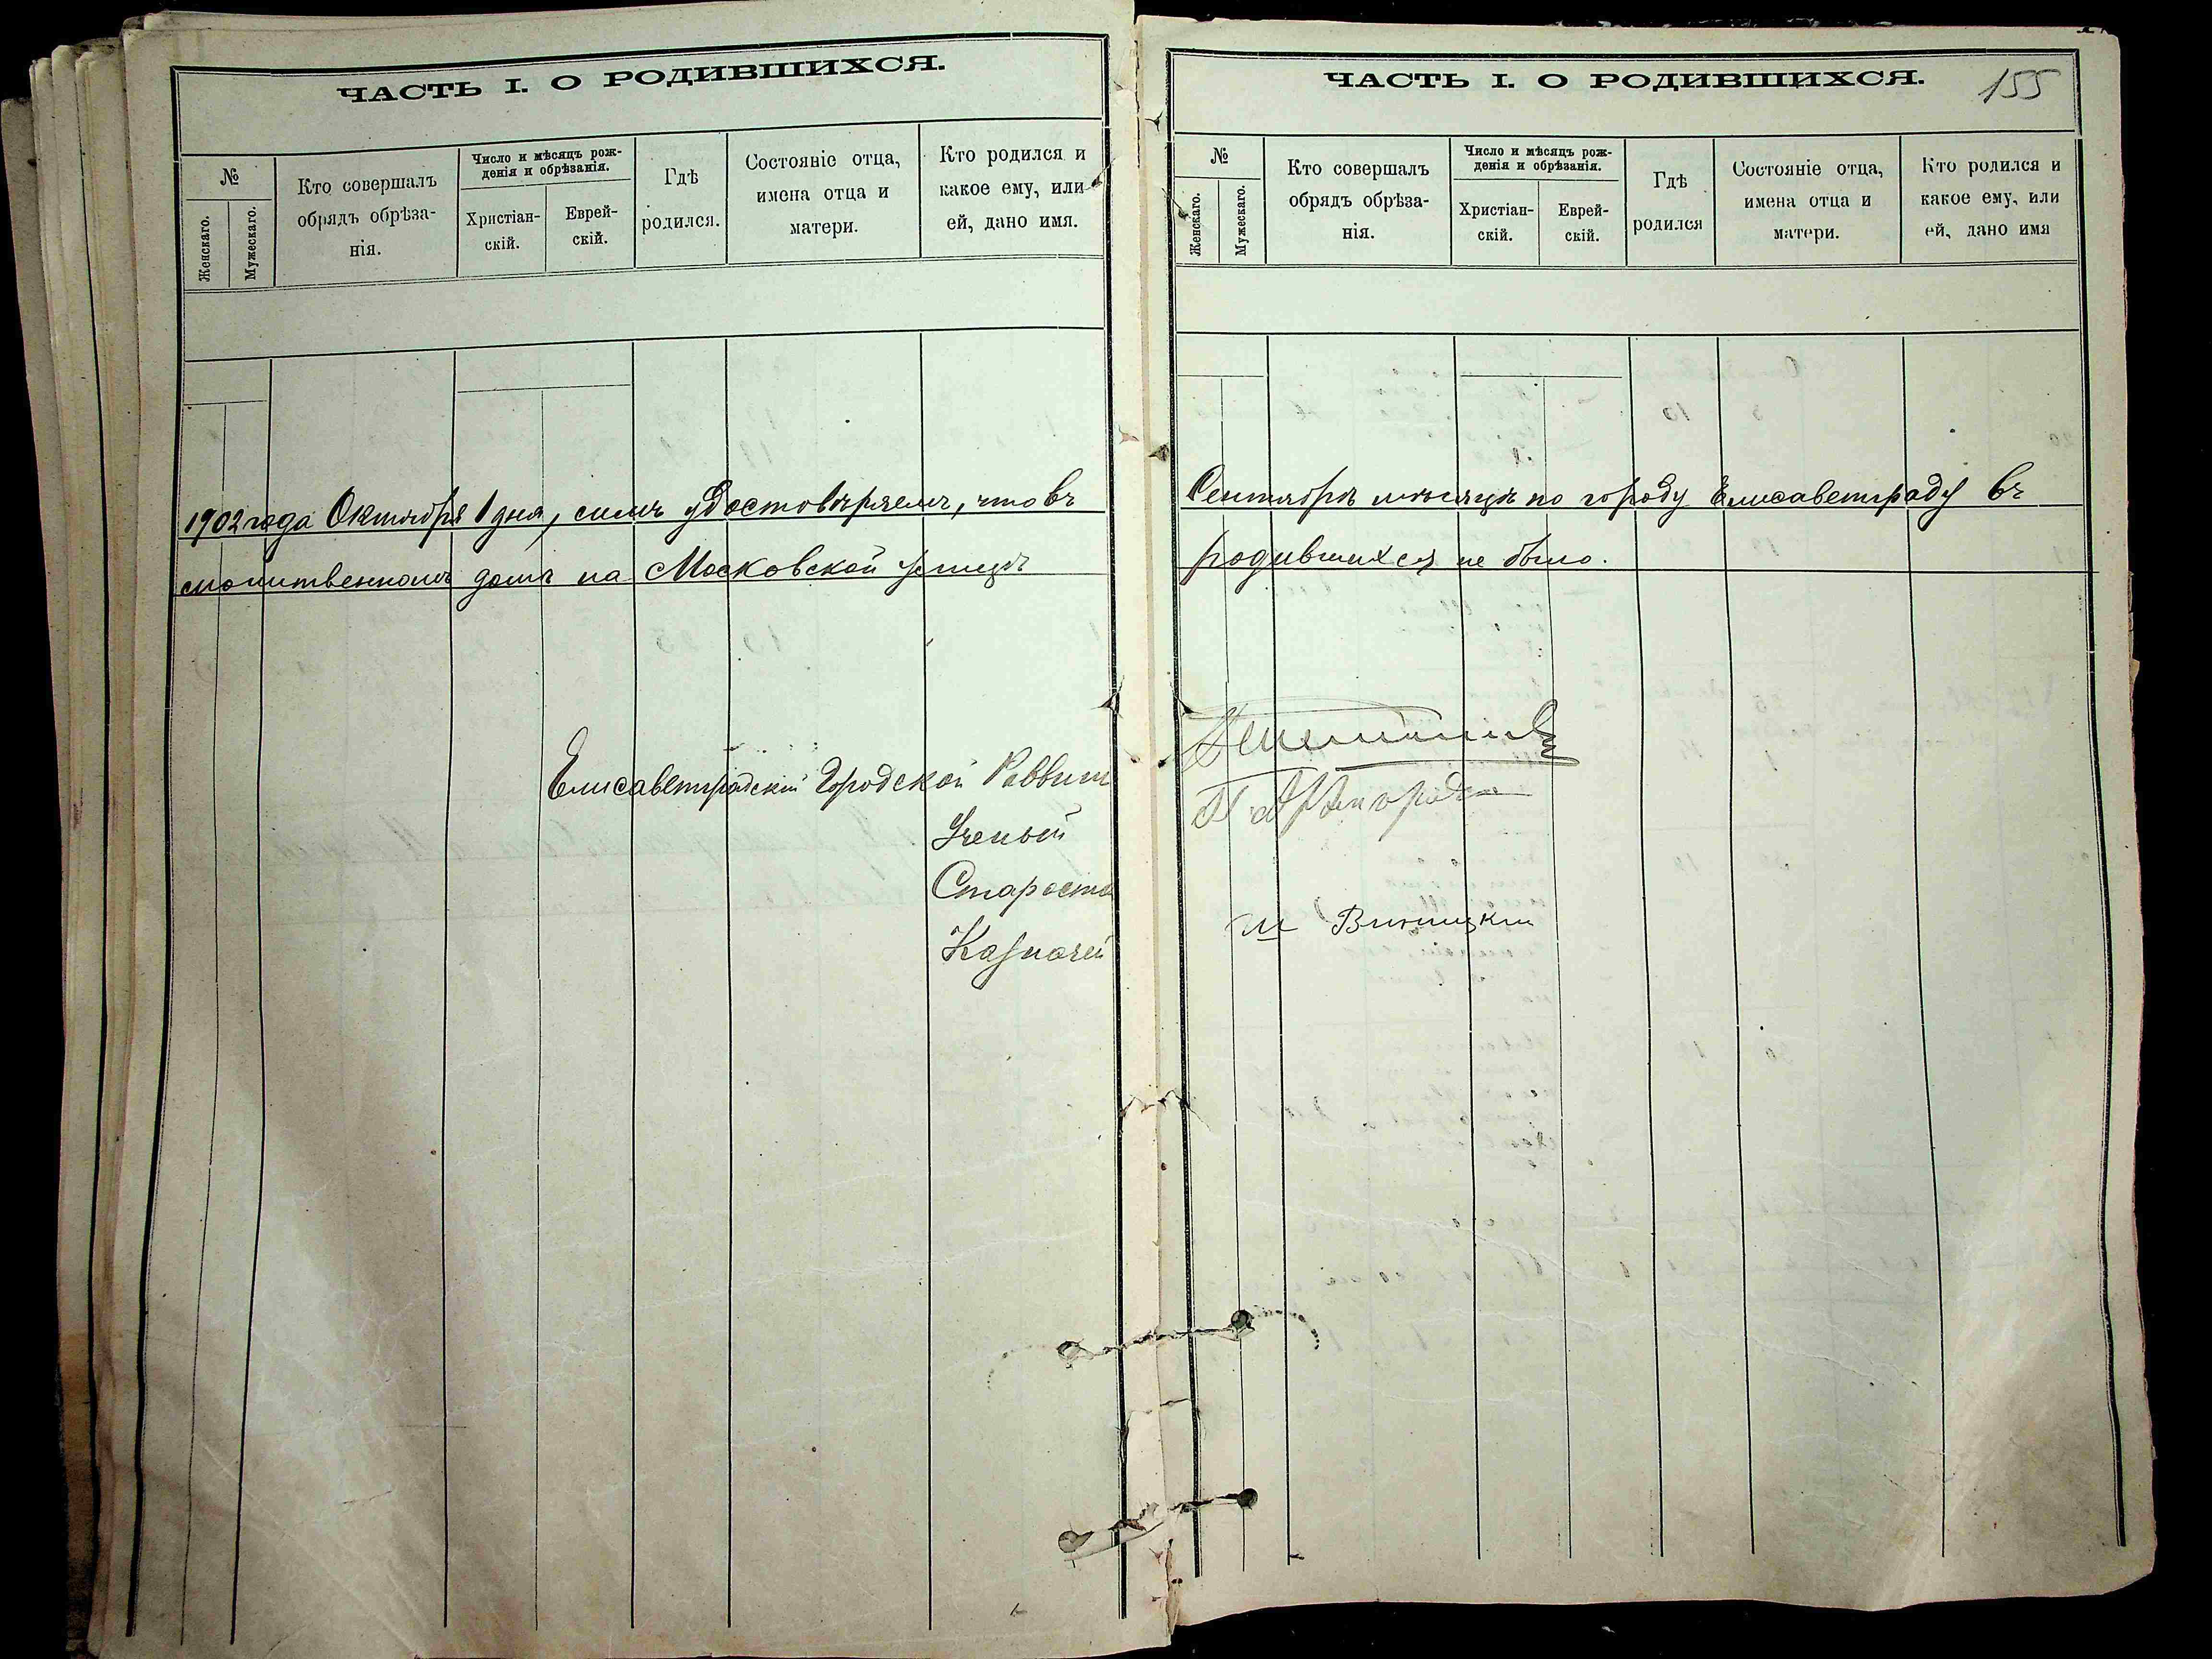 ЧАСТЬ I. О РОДИВШИХСЯ.
№
Женскаго.
Мужескаго.
Кто совершалъ
обрядъ обрѣза-
нія.
Число и мѣсяцъ рож-
денія и обрѣзанія.
Христіан-
скій.
Еврей-
скій.
Гдѣ
родился.
Состояніе отца,
имена отца и
матери.
Кто родился и
какое ему, или
ей, дано имя.
1902 года Октября 1 дня, симъ удостовѣряемъ, что въ
молитвенномъ домѣ на Московской улицѣ
Елисаветградскій Городской Раввинъ
Ученый
Староста
Казначей
ЧАСТЬ I. О РОДИВШИХСЯ.
155
№
Женскаго.
Мужескаго.
Кто совершалъ
обрядъ обрѣза-
нія.
Число и мѣсяцъ рож-
денія и обрѣзанія.
Христіан-
скій.
Еврей-
скій.
Гдѣ
родился
Состояніе отца,
имена отца и
матери.
Кто родился и
какое ему, или
ей, дано имя
Сентябрѣ мѣсяцѣ по городу Елисаветграду въ
родившихся не было.
М Виницкий